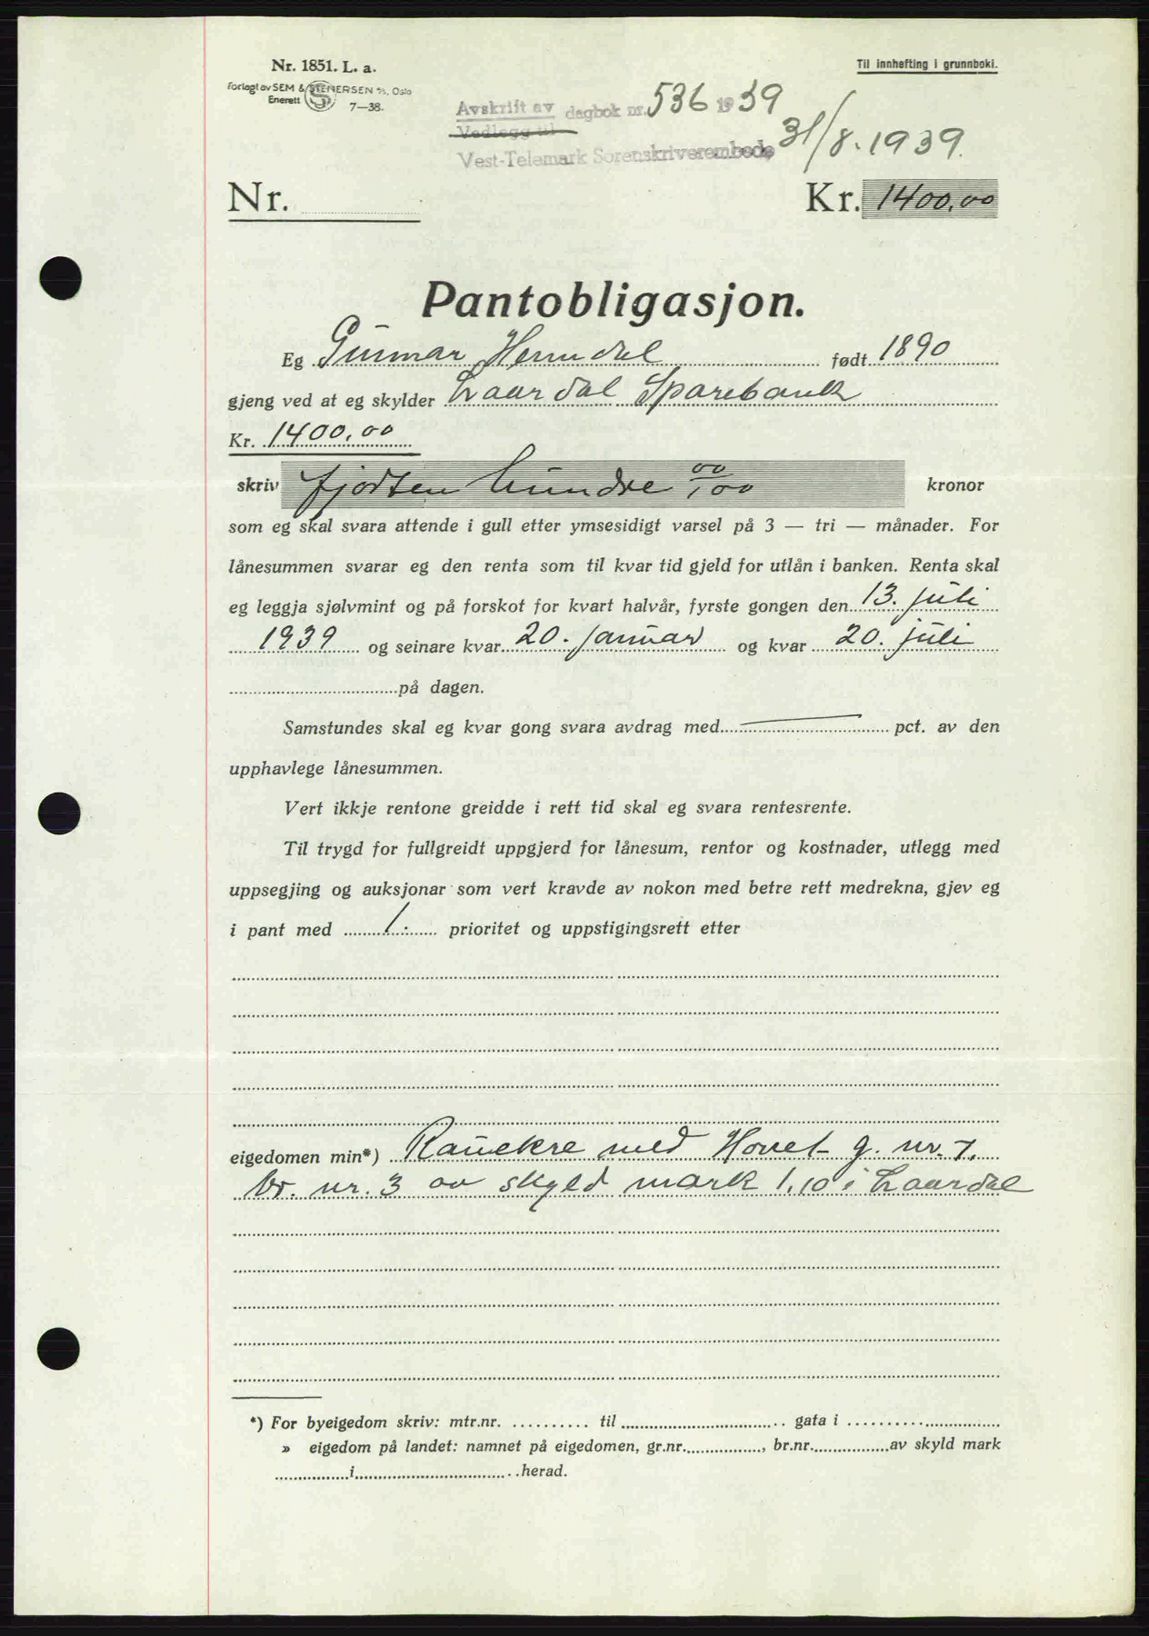 Nr. 1851. L. a.
Til innhefting i grunnboki.
Forlagt av SEM & STENERSEN A/S, Oslo
Enerett 7—38.
Avskrift av dagbok nr. 536 1939
Vedlegg til
Vest-Telemark Sorenskriverembede 31/8. 1939.
Nr. Kr. 1400,00
Pantobligasjon.
Eg Gunnar Hemdal født 1890
gjeng ved at eg skylder Laardal Sparebank
Kr. 1400,00
skriv fjorten hundre 00/100 kronor
som eg skal svara attende i gull etter ymsesidigt varsel på 3 — tri — månader. For
lånesummen svarar eg den renta som til kvar tid gjeld for utlån i banken. Renta skal
eg leggja sjølvmint og på forskot for kvart halvår, fyrste gongen den 13. juli
1939 og seinare kvar 20. januar og kvar 20. juli
på dagen.
Samstundes skal eg kvar gong svara avdrag med pct. av den
upphavlege lånesummen.
Vert ikkje rentone greidde i rett tid skal eg svara rentesrente.
Til trygd for fullgreidt uppgjerd for lånesum, rentor og kostnader, utlegg med
uppsegjing og auksjonar som vert kravde av nokon med betre rett medrekna, gjev eg
i pant med 1. prioritet og uppstigingsrett etter
eigedomen min*) Rauekre med Hovet g. nr. 7.
br. nr. 3 av skyld mark 1,10 i Laardal
*) For byeigedom skriv: mtr.nr. .......... til .......... gata i ..........
» eigedom på landet: namnet på eigedomen, gr.nr. .........., br.nr. .......... av skyld mark
.......... i .......... herad.